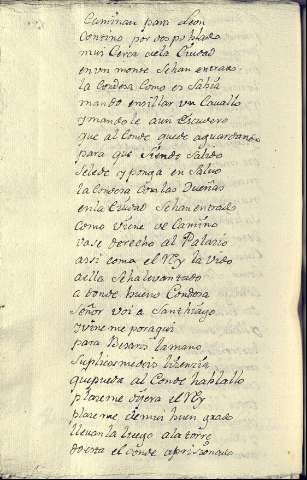 Caminan para Leon
Contino por despoblado
mui Cerca de la Ciudad
en un monte Se han entrado
la Condesa Como es Sabia
mando ensillar un Cavallo
y mandole a un Escudero
que al Conde quede aguardando
para que siendo Salido
Selede y ponga en Salvo
la Condesa Con las Dueñas
en la Ciudad Se han entrado
Como viene de Camino
vase derecho al Palacio
assi como el Rey la vido
a ella Se ha levantado
a donde bueno Condesa
Señor voi a Santhiago
y vine me por aqui
para Besaros la mano
Suplico me deis licencia
que pueda al Conde hablallo
plaze me dixera el Rey
plaze me de mui buen grado
llevan la luego a la torre
do esta el Conde aprisionado